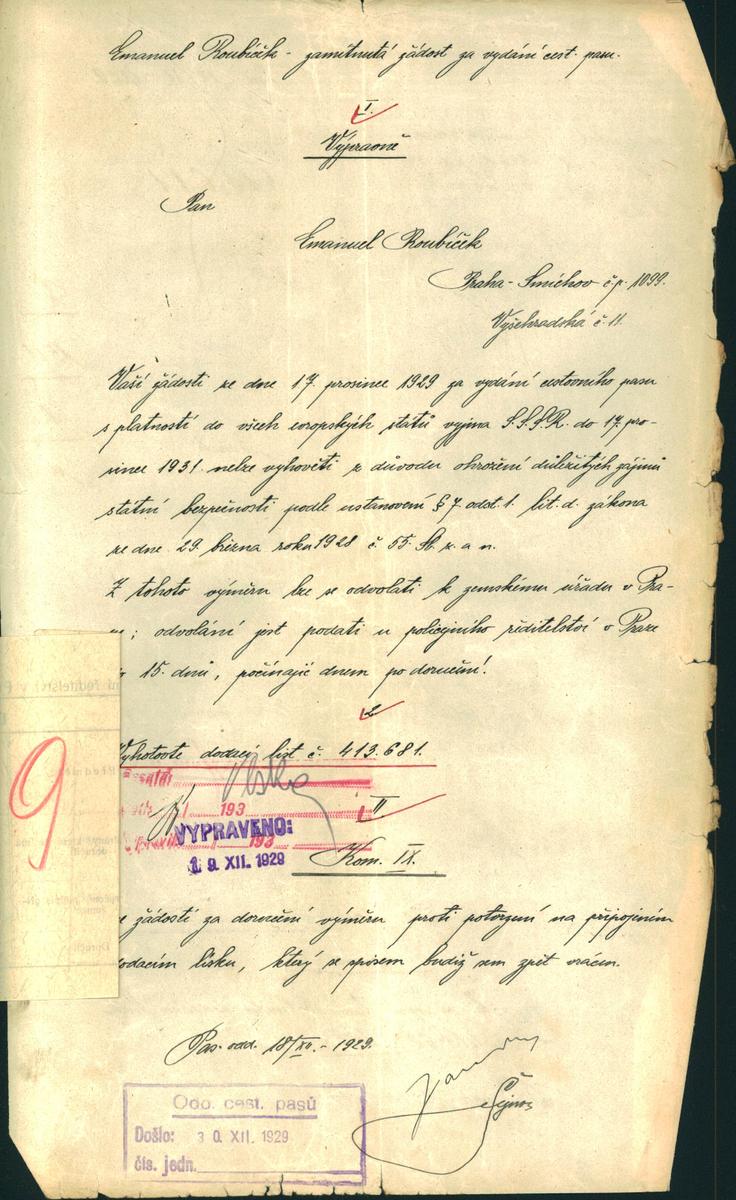 Emanuel Roubíček - zamítnutá žádost za vydání cest. pasu.
I.
Výpravně
Pan
Emanuel Roubíček
Praha - Smíchov č.p. 1099.
Vyšehradská č. 11.
Vaší žádosti ze dne 17. prosince 1929 za vydání cestovního pasu
s platností do všech evropských států vyjma S.S.S.R. do 17. pro-
since 1931. nelze vyhověti z důvodu ohrožení důležitých zájmů
státní bezpečnosti podle ustanovení § 7. odst. 1. lit. d. zákona
ze dne 29. března roku 1928 č. 55. Sb. z. a n.
Z tohoto výměru lze se odvolati k zemskému úřadu v Pra-
; odvolání jest podati u policejního ředitelství v Praze
15. dnů, počínajíc dnem po doručení.
2
Vyhotovte dodací list č. 413.681.
193
II.
193
VYPRAVENO:
19. XII. 1929
Kom. IX.
9
žádosti za doručení výměru proti potvrzení na připojeném
dodacím lísku, který se spisem budiž sem zpět vrácen.
Pas. odd. 18/XII. - 1929.
Odd. cest. pasů
Došlo: 30. XII. 1929
čís. jedn.